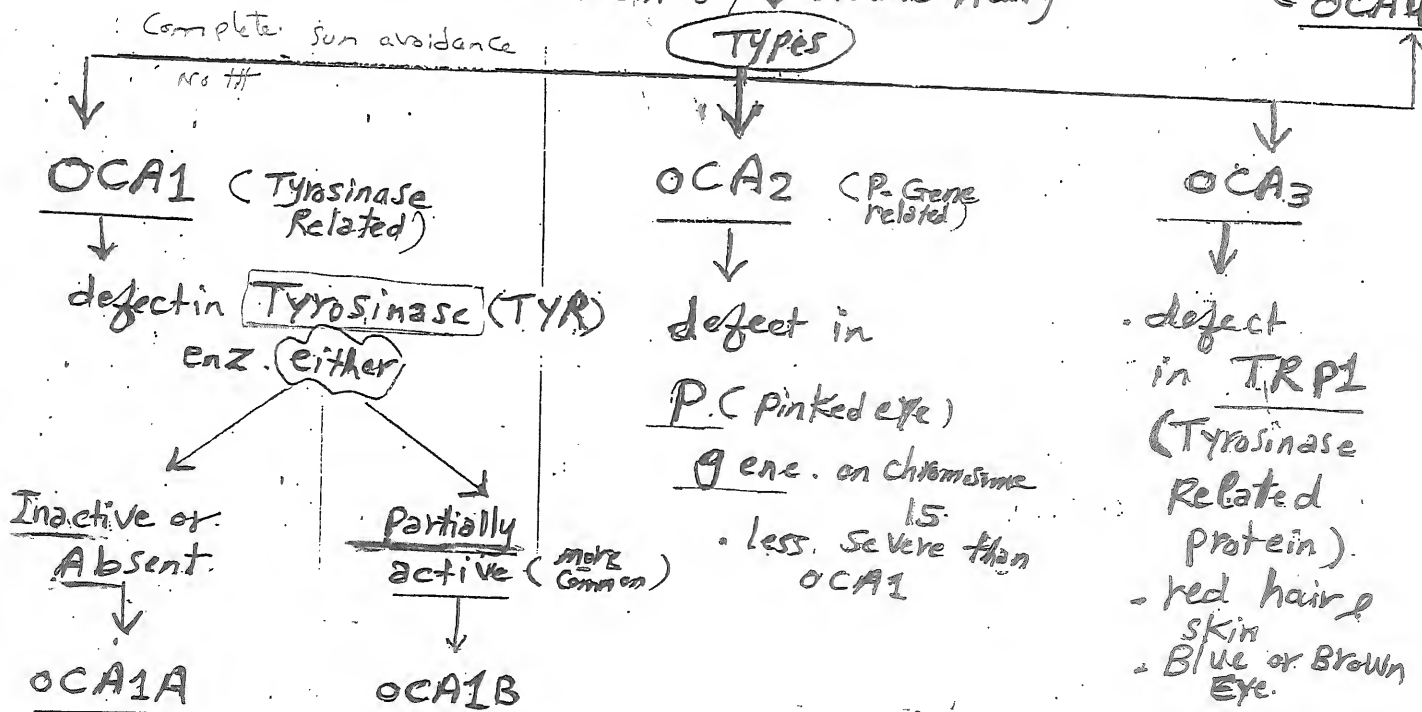 OCA4
Complete sun avoidance
Types
No ttt
OCA1 (Tyrosinase
Related)
defect in Tyrosinase (TYR)
enz. either
Inactive or
Absent.
OCA1A
Partially
active (more
common)
OCA1B
OCA2 (P-Gene
related)
defect in
P. (pinked eye)
gene. on chromosome
15.
. less severe than
OCA1
OCA3
. defect
in TRP1
(Tyrosinase
Related
protein).
- red hair &
skin
- Blue or Brown
Eye.